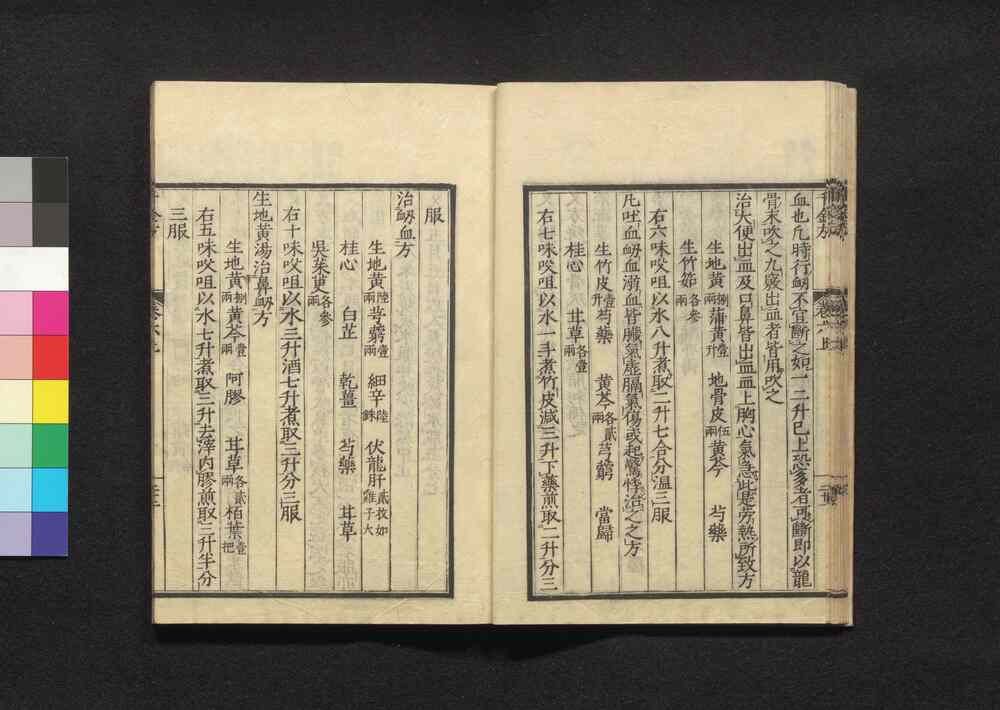 血也凡時行衂不宜斷之如一二升已上恐多者可斷即以龍
骨末吹之九竅出血者皆用吹之
治大便出血及口鼻皆出血血上胸心氣急此是勞熱所致方
生地黄捌兩蒲黄壹升　地骨皮伍兩黄芩　芍藥
生竹茹各參兩
右六味㕮咀以水八升煮取二升七合分溫三服
凡吐血衂血溺血皆臟氣虛膈氣傷或起驚悸治之之方
生竹皮壹升芍藥　黄芩各貳兩芎藭　當歸
桂心　甘草各壹兩
右七味㕮咀以水一斗煮竹皮減三升下藥煎取二升分三
服
治衂血方
生地黄陸兩芎藭壹兩　細辛陸銖　伏龍肝貳枚如雞子大
桂心　白芷　乾薑　芍藥　甘草
吳茱萸各參兩
右十味㕮咀以水三升酒七升煮取三升分三服
生地黄湯治鼻衂方
生地黄捌兩黄芩壹兩　阿膠　甘草各貳兩栢葉壹把
右五味㕮咀以水七升煮取三升去滓内膠煎取三升半分
三服